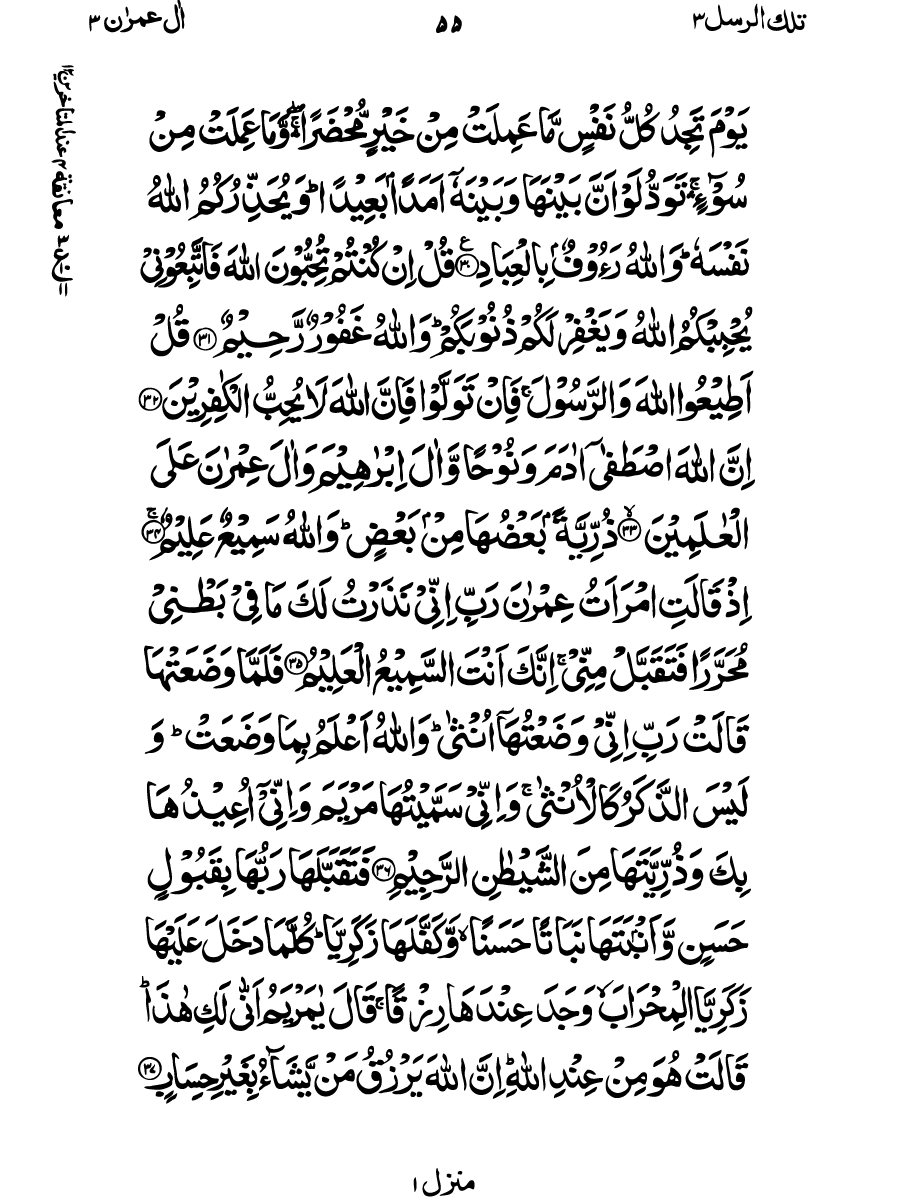 تلك الرسل ۳
۵۵
اٰل عمرٰن ۳
يَوۡمَ تَجِدُ كُلُّ نَفۡسٍ مَّا عَمِلَتۡ مِنۡ خَيۡرٍ مُّحۡضَرًا ۛۖۚ وَّمَا عَمِلَتۡ مِنۡ
سُوۡٓءٍ ۛۚ تَوَدُّ لَوۡ اَنَّ بَيۡنَهَا وَبَيۡنَهٗۤ اَمَدًاۢ بَعِيۡدًا ؕ وَيُحَذِّرُكُمُ اللّٰهُ
نَفۡسَهٗ ؕ وَاللّٰهُ رَءُوۡفٌۢ بِالۡعِبَادِ ﴿۳۰﴾ ع قُلۡ اِنۡ كُنۡتُمۡ تُحِبُّوۡنَ اللّٰهَ فَاتَّبِعُوۡنِىۡ
يُحۡبِبۡكُمُ اللّٰهُ وَيَغۡفِرۡ لَكُمۡ ذُنُوۡبَكُمۡ ؕ وَاللّٰهُ غَفُوۡرٌ رَّحِيۡمٌ ﴿۳۱﴾ قُلۡ
اَطِيۡعُوا اللّٰهَ وَالرَّسُوۡلَ ۚ فَاِنۡ تَوَلَّوۡا فَاِنَّ اللّٰهَ لَا يُحِبُّ الۡكٰفِرِيۡنَ ﴿۳۲﴾
اِنَّ اللّٰهَ اصۡطَفٰۤى اٰدَمَ وَنُوۡحًا وَّاٰلَ اِبۡرٰهِيۡمَ وَاٰلَ عِمۡرٰنَ عَلَى
الۡعٰلَمِيۡنَۙ ﴿۳۳﴾ ذُرِّيَّةًۢ بَعۡضُهَا مِنۡۢ بَعۡضٍ ؕ وَاللّٰهُ سَمِيۡعٌ عَلِيۡمٌۚ ﴿۳۴﴾
اِذۡ قَالَتِ امۡرَاَتُ عِمۡرٰنَ رَبِّ اِنِّىۡ نَذَرۡتُ لَكَ مَا فِىۡ بَطۡنِىۡ
مُحَرَّرًا فَتَقَبَّلۡ مِنِّىۡ ۚ اِنَّكَ اَنۡتَ السَّمِيۡعُ الۡعَلِيۡمُ ﴿۳۵﴾ فَلَمَّا وَضَعَتۡهَا
قَالَتۡ رَبِّ اِنِّىۡ وَضَعۡتُهَاۤ اُنۡثٰىؕ وَاللّٰهُ اَعۡلَمُ بِمَا وَضَعَتۡ ؕ وَ
لَيۡسَ الذَّكَرُ كَالۡاُنۡثٰى ۚ وَاِنِّىۡ سَمَّيۡتُهَا مَرۡيَمَ وَاِنِّىۡۤ اُعِيۡذُهَا
بِكَ وَذُرِّيَّتَهَا مِنَ الشَّيۡطٰنِ الرَّجِيۡمِ ﴿۳۶﴾ فَتَقَبَّلَهَا رَبُّهَا بِقَبُوۡلٍ
حَسَنٍ وَّاَنۡۢبَتَهَا نَبَاتًا حَسَنًا ۙ وَّكَفَّلَهَا زَكَرِيَّا ؕ كُلَّمَا دَخَلَ عَلَيۡهَا
زَكَرِيَّا الۡمِحۡرَابَ ۙ وَجَدَ عِنۡدَهَا رِزۡقًا ۚ قَالَ يٰمَرۡيَمُ اَنّٰى لَكِ هٰذَا ؕ
قَالَتۡ هُوَ مِنۡ عِنۡدِ اللّٰهِ ؕ اِنَّ اللّٰهَ يَرۡزُقُ مَنۡ يَّشَآءُ بِغَيۡرِ حِسَابٍ ﴿۳۷﴾
منزل ۱